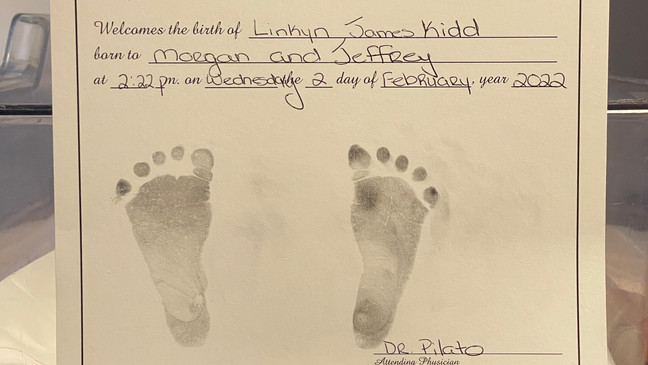 Welcomes the birth of Linkyn James Kidd
born to Morgan and Jeffrey
at 2:22 pm. on Wednesday the 2 day of February, year 2022
DR. Pilato
Attending Physician